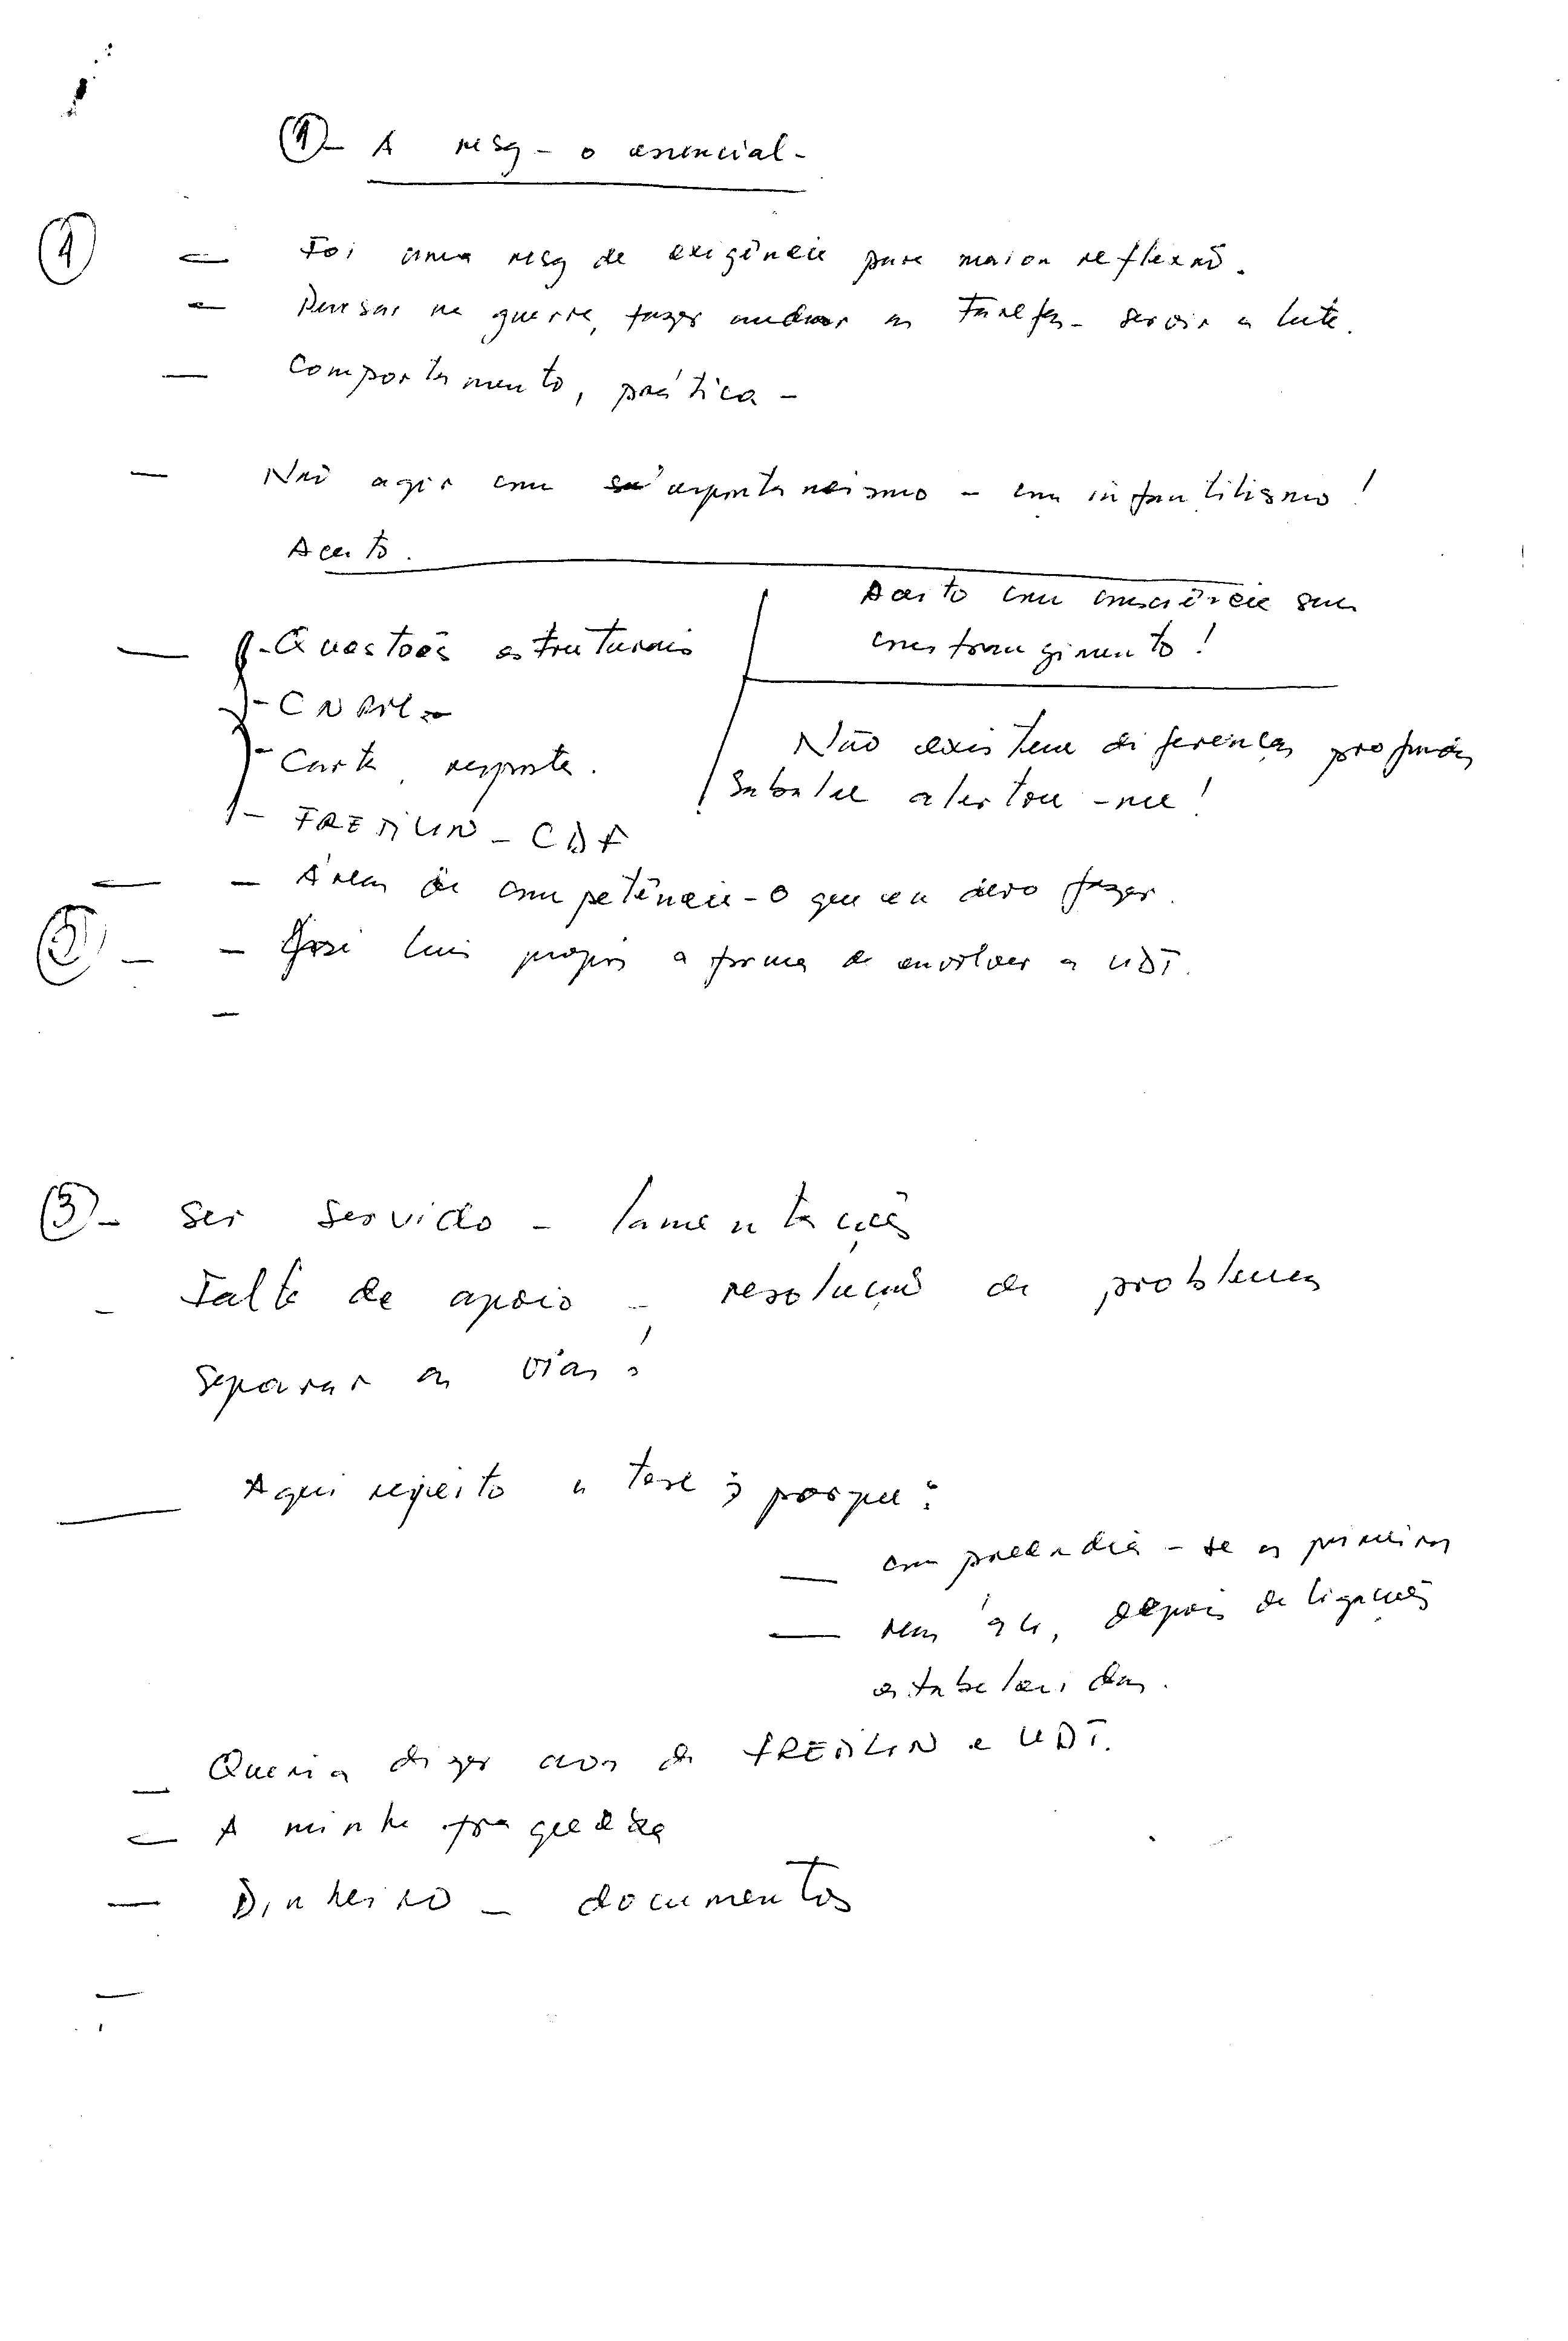 ① - A msg - o essencial -
① — Foi uma msg de exigência para maior reflexão.
— Pensar na guerra, fazer andar as tarefas - servir a luta.
— Comportamento, prática -
— Não agir com espontaneismo - com infantilismo!
Aceito.
Aceito com consciência sem
constrangimento!
— - Questões estruturais
- CNRM -
- Carta, resposta.
- FRETILIN - CDF
Não existem diferenças profundas
Sabalae alertou-me!
— - Áreas de competência - O que eu devo fazer.
② - - José Luis propôs a forma de envolver a UDT.
-
③ - Ser servido - lamentações
- Falta de apoio - resolução de problemas
separar as vias?
— Aqui rejeito a tese; porque:
— compreendia-se os primeiros
— depois de ligações
estabelecidas.
— Queria dizer aos da FRETILIN e UDT.
— A minha fraqueza
— Dinheiro - documentos
—